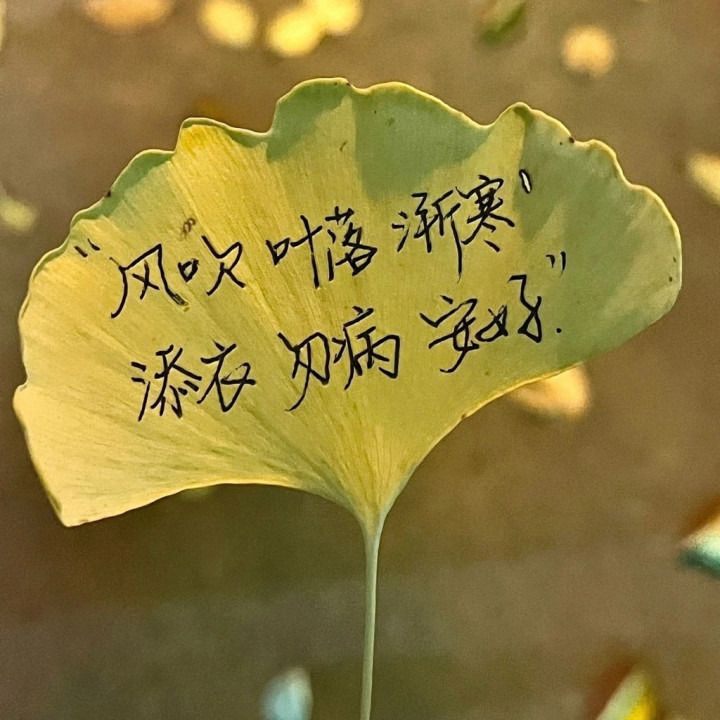 "风吹 叶落 渐寒,
添衣 勿病 安好."